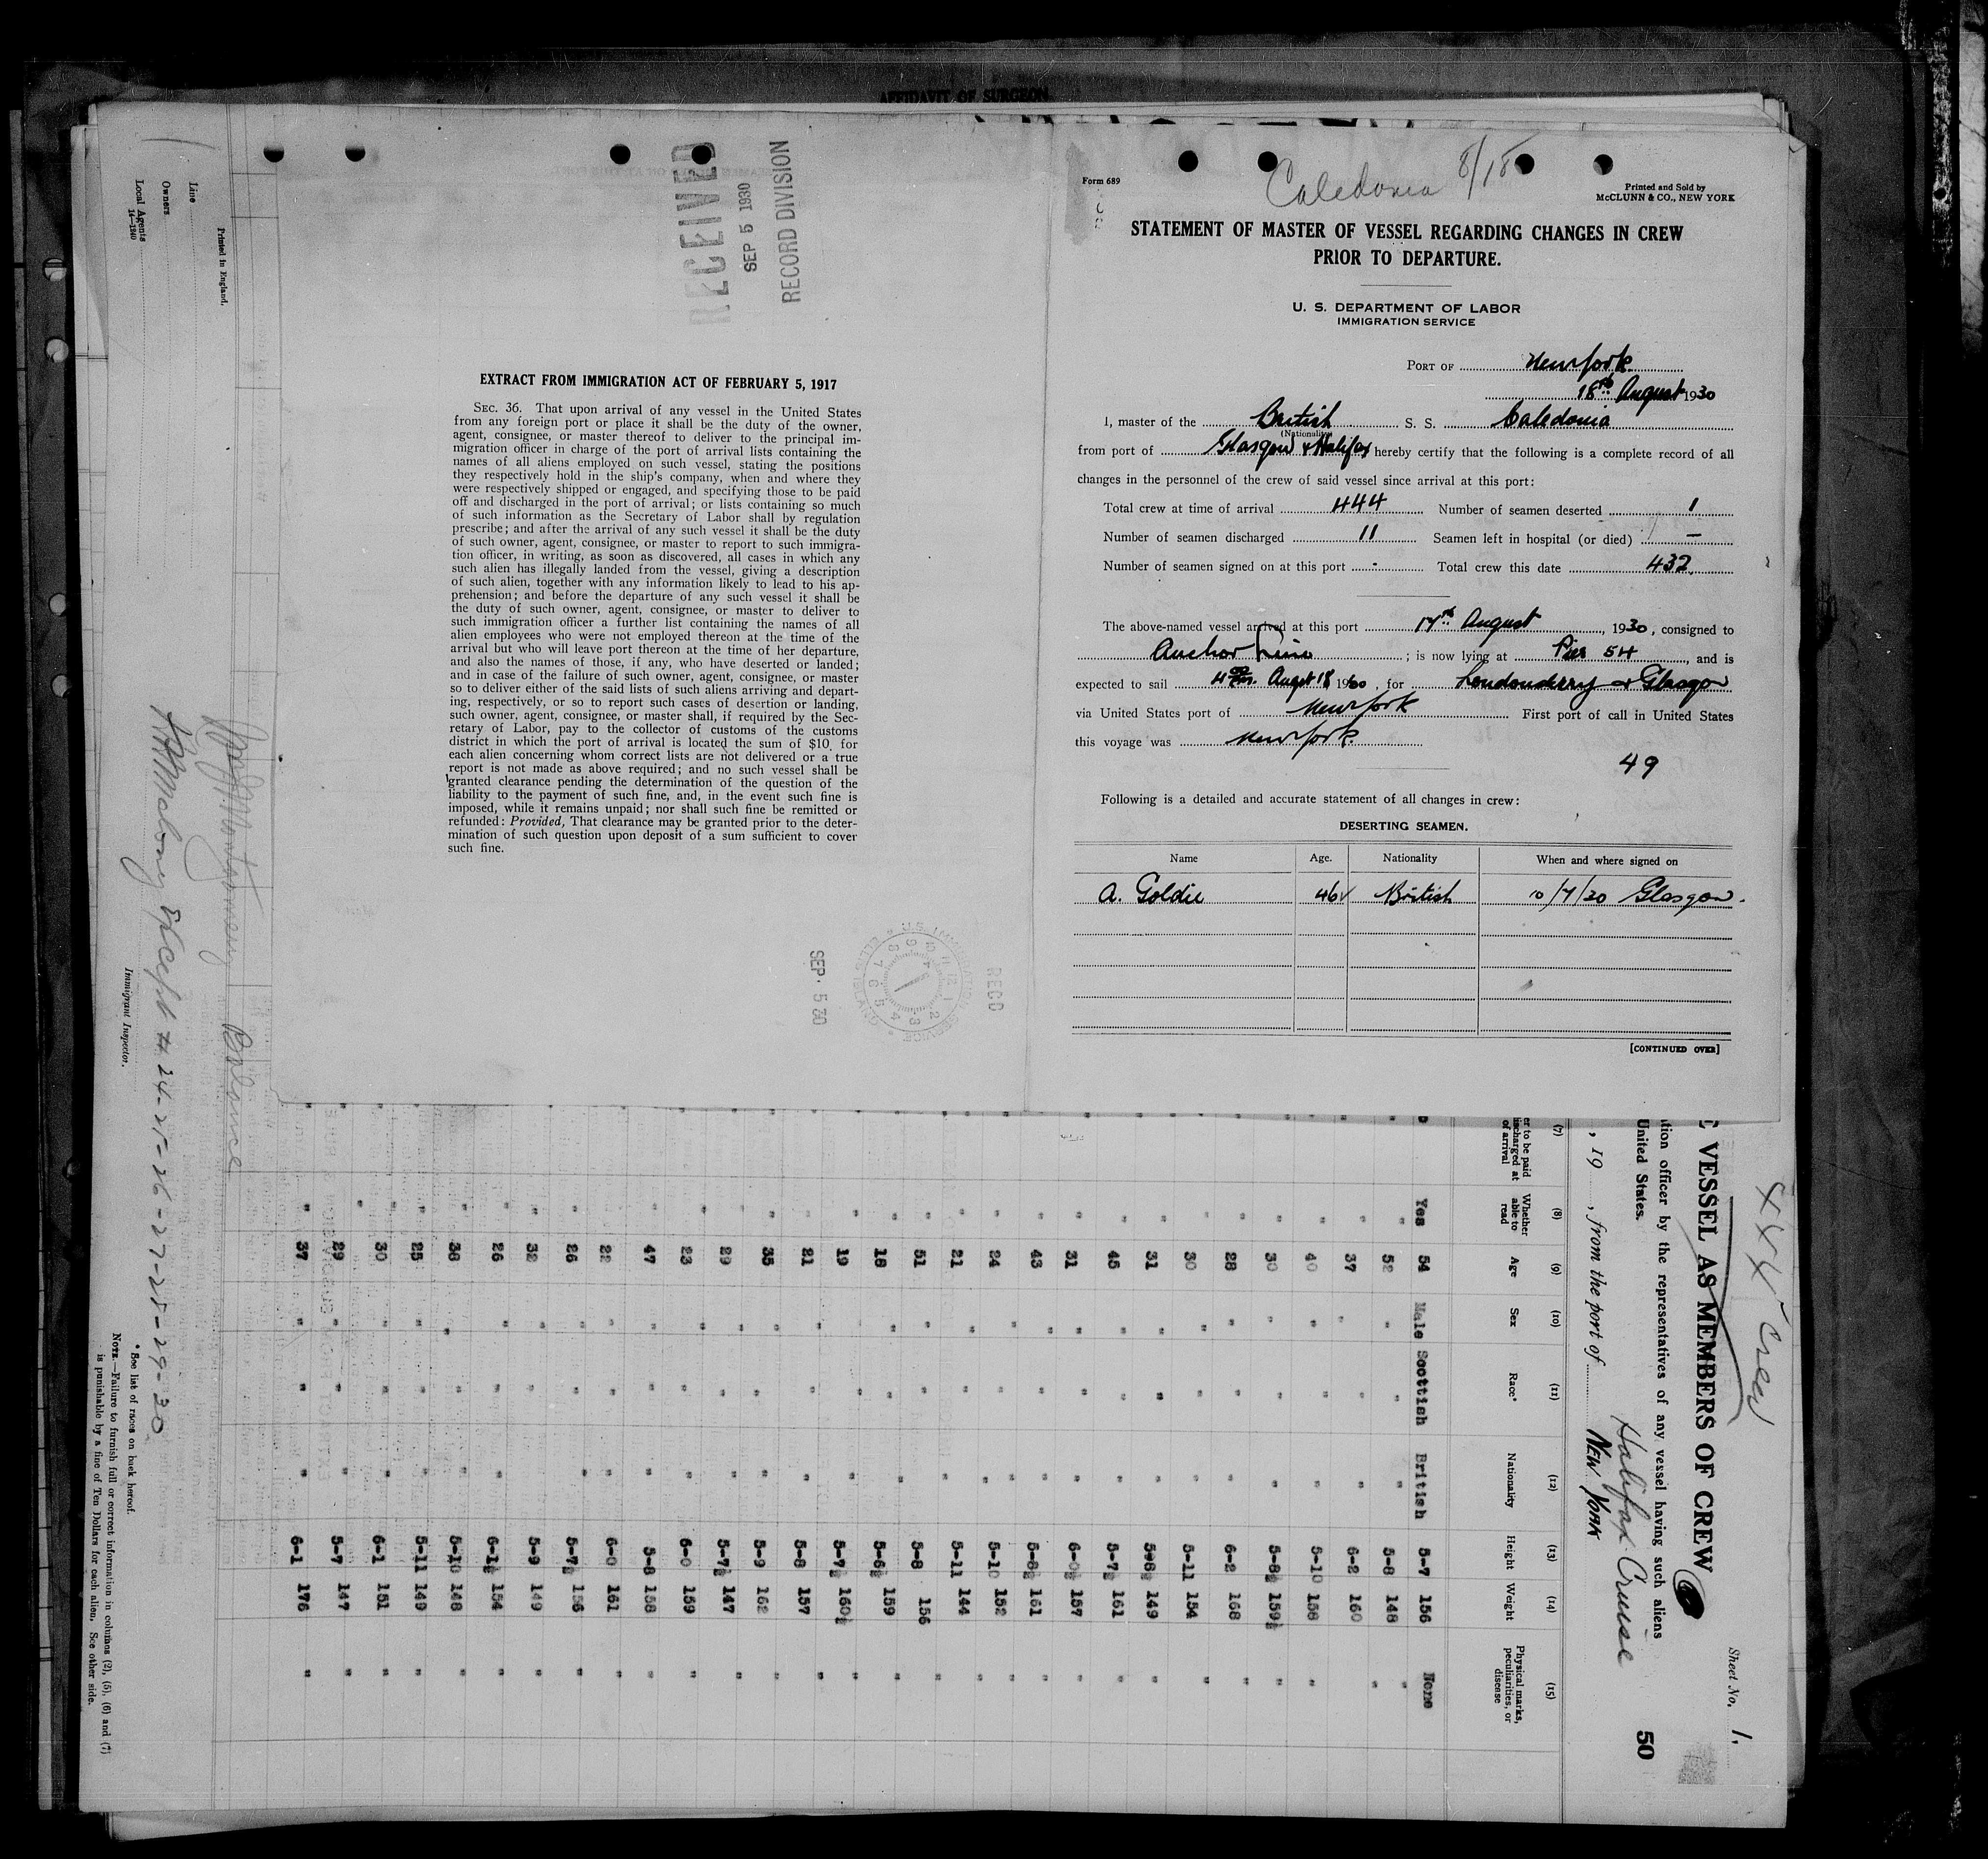 AFFIDAVIT OF SURGEON
RECEIVED
SEP 5 1930
RECORD DIVISION
EXTRACT FROM IMMIGRATION ACT OF FEBRUARY 5, 1917
SEC. 36. That upon arrival of any vessel in the United States
from any foreign port or place it shall be the duty of the owner,
agent, consignee, or master thereof to deliver to the principal im-
migration officer in charge of the port of arrival lists containing the
names of all aliens employed on such vessel, stating the positions
they respectively hold in the ship's company, when and where they
were respectively shipped or engaged, and specifying those to be paid
off and discharged in the port of arrival; or lists containing so much
of such information as the Secretary of Labor shall by regulation
prescribe; and after the arrival of any such vessel it shall be the duty
of such owner, agent, consignee, or master to report to such immigra-
tion officer, in writing, as soon as discovered, all cases in which any
such alien has illegally landed from the vessel, giving a description
of such alien, together with any information likely to lead to his ap-
prehension; and before the departure of any such vessel it shall be
the duty of such owner, agent, consignee, or master to deliver to
such immigration officer a further list containing the names of all
alien employees who were not employed thereon at the time of the
arrival but who will leave port thereon at the time of her departure,
and also the names of those, if any, who have deserted or landed;
and in case of the failure of such owner, agent, consignee, or master
so to deliver either of the said lists of such aliens arriving and depart-
ing, respectively, or so to report such cases of desertion or landing,
such owner, agent, consignee, or master shall, if required by the Sec-
retary of Labor, pay to the collector of customs of the customs
district in which the port of arrival is located the sum of $10 for
each alien concerning whom correct lists are not delivered or a true
report is not made as above required; and no such vessel shall be
granted clearance pending the determination of the question of the
liability to the payment of such fine, and, in the event such fine is
imposed, while it remains unpaid; nor shall such fine be remitted or
refunded: Provided, That clearance may be granted prior to the deter-
mination of such question upon deposit of a sum sufficient to cover
such fine.
SEP. 5 30
RECD
Form 689
Caledonia 8/18
Printed and Sold by
McCLUNN & CO., NEW YORK
STATEMENT OF MASTER OF VESSEL REGARDING CHANGES IN CREW
PRIOR TO DEPARTURE.
U. S. DEPARTMENT OF LABOR
IMMIGRATION SERVICE
PORT OF New York
18th August 1930
I, master of the British S. S. Caledonia
(Nationality)
from port of Glasgow & Halifax hereby certify that the following is a complete record of all
changes in the personnel of the crew of said vessel since arrival at this port:
Total crew at time of arrival 444 Number of seamen deserted 1
Number of seamen discharged 11 Seamen left in hospital (or died) —
Number of seamen signed on at this port - Total crew this date 432
The above-named vessel arrived at this port 17th August, 1930, consigned to
Anchor Line; is now lying at Pier 54, and is
expected to sail August 18 1930, for Londonderry & Glasgow
via United States port of New York First port of call in United States
this voyage was New York
49
Following is a detailed and accurate statement of all changes in crew:
DESERTING SEAMEN.
Name Age. Nationality When and where signed on
A. Goldie 46 British 10/7/30 Glasgow.
[CONTINUED OVER]
444 Crew
Sheet No. 1.
E VESSEL AS MEMBERS OF CREW
tion officer by the representatives of any vessel having such aliens
United States.
Halifax Cruise
50
, 19 , from the port of NEW YORK
(7) (8) (9) (10) (11) (12) (13) (14) (15)
er to be paid
discharged at
of arrival
Whether
able to
read
Age
Sex
Race*
Nationality
Height
Weight
Physical marks,
peculiarities, or
disease
Yes 54 Male Scottish British 5-7 156 None
" 52 " " " 5-8 148 "
" 37 " " " 6-2 160 "
" 40 " " " 5-10 158 "
" 30 " " " 5-8½ 159½ "
" 28 " " " 6-2 168 "
" 30 " " " 5-11 154 "
" 31 " " " 5-8½ 149 "
" 45 " " " 5-7½ 161 "
" 31 " " " 6-0½ 157 "
" 43 " " " 5-8½ 161 "
" 24 " " " 5-10 152 "
" 21 " " " 5-11 144 "
" 51 " " " 5-8 156 "
" 18 " " " 5-6½ 159 "
" 19 " " " 5-7½ 160½ "
" 21 " " " 5-8 157 "
" 35 " " " 5-9 162 "
" 29 " " " 5-7½ 147 "
" 23 " " " 6-0 159 "
" 47 " " " 5-8 158 "
" 22 " " " 6-0 161 "
" 26 " " " 5-7½ 156 "
" 32 " " " 5-9 149 "
" 26 " " " 6-1½ 154 "
" 38 " " " 5-10 148 "
" 25 " " " 5-11 149 "
" 30 " " " 6-1 151 "
" 29 " " " 5-7 147 "
" 37 " " " 6-1 176 "
Printed in England.
Line
Owners
Local Agents
14—1240
Montgomery Balance
Except # 24-25-26-27-28-29-30
Immigrant Inspector.
* See list of races on back hereof.
NOTE.—Failure to furnish full or correct information in columns (2), (5), (6) and (7)
is punishable by a fine of Ten Dollars for each alien. See other side.